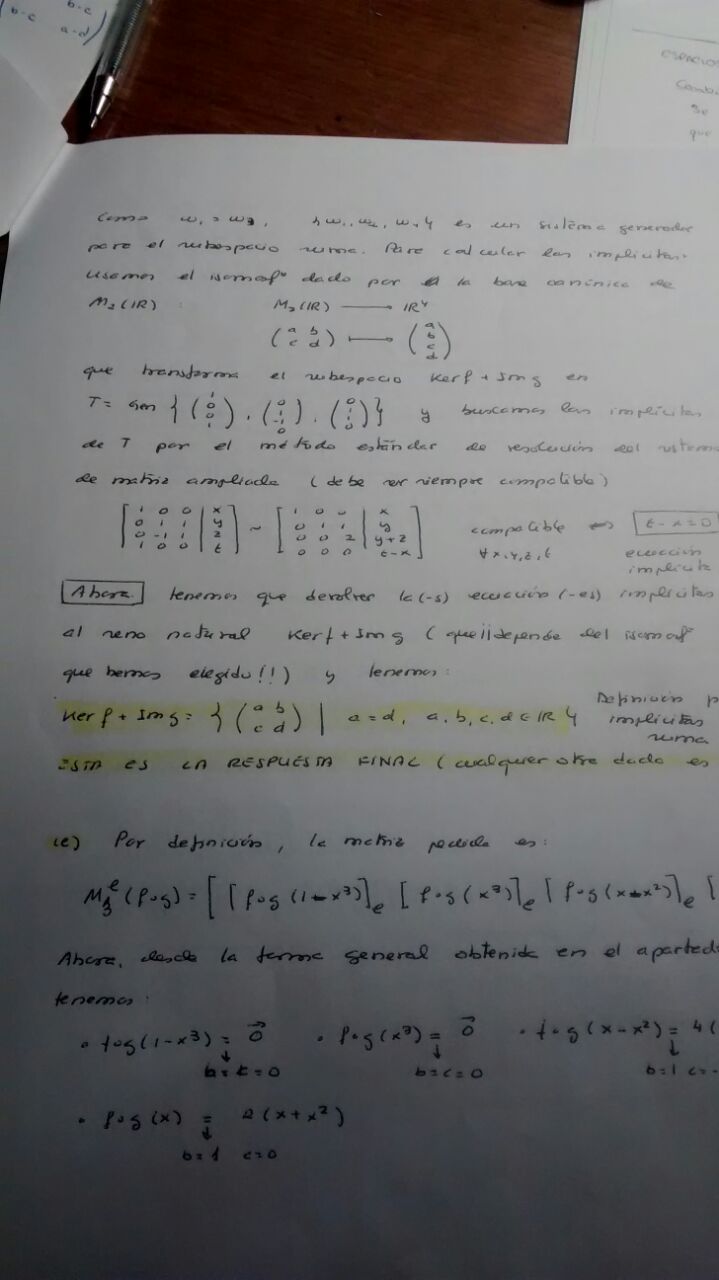 b-c
b-c a-d)
ESPACIOS
Se
que
Como w₁ = w₃, {w₁, w₂, w₄} es un sistema generador
para el subespacio suma. Para calcular las implícitas
usamos el isomorfº dado por la base canónica de
M₂(IR) : M₂(IR) → IR⁴
(a b / c d) ↦ (a / b / c / d)
que transforma el subespacio Kerf + Img en
T = Gen {(1 / 0 / 0 / 1), (0 / 1 / -1 / 0), (0 / 1 / 1 / 0)} y buscamos las implícitas
de T por el método estándar de resolución del sistema
de matriz ampliada (debe ser siempre compatible)
[1 0 0 | x / 0 1 1 | y / 0 -1 1 | z / 1 0 0 | t] ~ [1 0 0 | x / 0 1 1 | y / 0 0 2 | y+z / 0 0 0 | t-x] compatible ⇔ t-x=0
∀x,y,z,t ecuación
implícita
Ahora tenemos que devolver la(-s) ecuación(-es) implícitas
al reno natural Kerf + Img (que ¡¡depende del isomorfº
que hemos elegido!!) y tenemos:
Ker f + Im g = {(a b / c d) | a=d, a,b,c,d ∈ IR} Definición p
implícitas
suma
ESTA ES LA RESPUESTA FINAL (cualquier otra dada es
(e) Por definición, la matriz pedida es:
M (f∘g) = [[f∘g(1-x³)]e [f∘g(x³)]e [f∘g(x-x²)]e [
Ahora, desde la forma general obtenida en el apartad
tenemos:
• f∘g(1-x³) = 0⃗ • f∘g(x³) = 0⃗ • f∘g(x-x²) = 4(
↓ ↓ ↓
b=c=0 b=c=0 b=1 c=-
• f∘g(x) = 2(x+x²)
↓
b=1 c=0